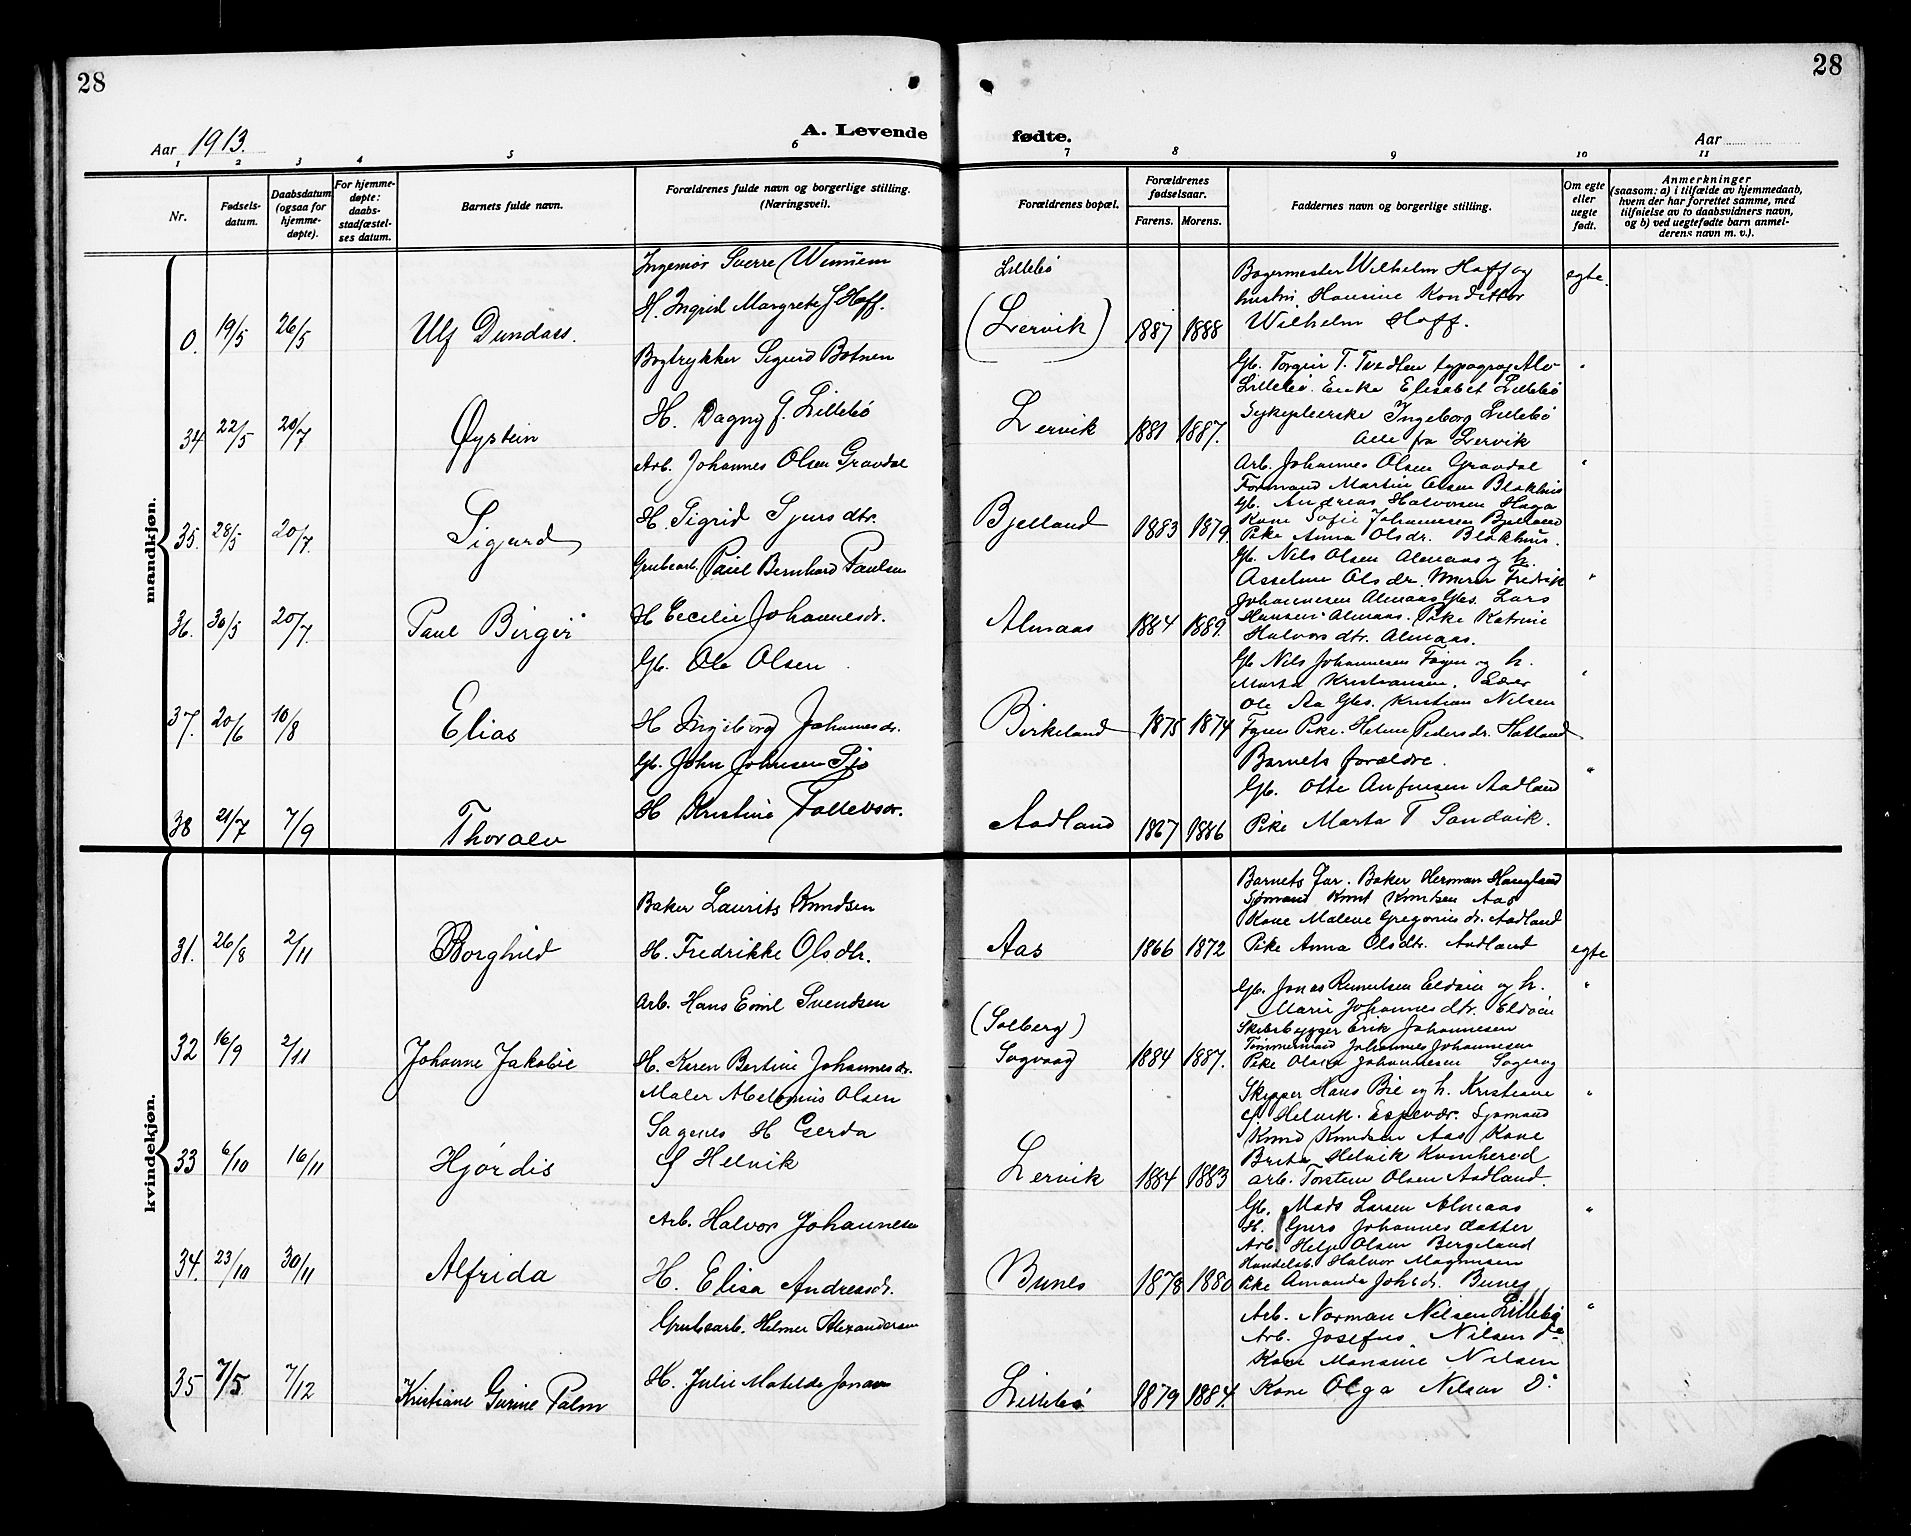 28
28
Aar 1913.
A. Levende fødte.
Aar
1 2 3 4 5 6 7 8 9 10 11
Nr.
Fødsels-
datum.
Daabsdatum
(ogsaa for
hjemme-
døpte).
For hjemme-
døpte:
daabs-
stadfæstel-
ses datum.
Barnets fulde navn.
Forældrenes fulde navn og borgerlige stilling.
(Næringsvei).
Forældrenes bopæl.
Forældrenes
fødselsaar.
Farens. Morens.
Faddernes navn og borgerlige stilling.
Om egte
eller
uegte
født.
Anmerkninger
(saasom: a) i tilfælde av hjemmedaab,
hvem der har forrettet samme, med
tilføielse av to daabsvidners navn,
og b) ved uegtefødte barn anmel-
derens navn m. v.).
mandkjøn.
0. 19/5 26/5 Ulf Dundass.
Ingeniør Sverre
H. Ingrid Margrete J Hoff.
Lillebø
(Lervik) 1887 1888
Bagermester Wilhelm Hoff og
hustru. Hansine Konditter
Wilhelm Hoff.
egte.
34 22/5 20/7 Øystein
Bogtrykker Sigurd Botnen
H. Dagny G. Lillebø
Lervik 1881 1887.
Gb. Torgeir T. Tvedten typograf Alv
Lillebø. Enke Elisabet Lillebø
Sykepleierske Ingeborg Lillebø
Alle fra Lervik
"
35. 28/5 20/7. Sigurd
Arb. Johannes Olsen Gravdal
H. Sigrid Sjursdtr.
Bjelland 1883 1879
Arb. Johannes Olsen Gravdal
Formand Martin Olsen Blokhus
Gb. Andreas Halvorsen Haga
Kone Sofie Johannessen Bjelland
Pike Anna Olsdr. Blokhus.
"
36. 30/5 20/7. Paul Birger
Grubearb. Paul Bernhard Paulsen
H Cecilie Johannesdr.
Almaas 1884 1889.
Gb. Nils Olsen Almaas og h.
Asseline Olsdr. Murer Fredrik
Johannesen Almaas Gbs. Lars
Hansen Almaas. Pike Katrine
Halvorsdtr. Almaas.
"
37. 20/6 10/8 Elias
Gb. Ole Olsen
H Ingeborg Johannesdr.
Birkeland 1875 1874
Gb Nils Johannesen Føyen og h.
Marta Kristiansen.
Ole Aa Gbs. Kristian Nilsen
Føyen Pike. Helene Pedersdr. Hatland
"
38 21/7 7/9 Thoralv
Gb. John Johnsen
H Kristine
Aadland 1867 1886
Barnets forældre.
Gb. Otto Anfinsen Aadland
Pike Marta T Sandvik.
"
kvindekjøn.
31. 26/8 2/11 Borghild
Baker Laurits Knudsen
H. Fredrikke Olsdtr.
Aas 1866 1872
Barnets far. Baker Herman Haugland
Sjømand Knut Knutsen Aas
Kone Malene Gregoriusdr. Aadland
Pike Anna Olsdtr. Aadland
egte
32 16/9 2/11 Johanne Jakobie
Arb. Hans Emil Svendsen
H. Keren Bertine Johannesdr.
(Solberg)
Sagvaag 1884 1887.
Gb. Jonas Eldøen og h.
Marie Johannesdtr. Eldøen
Skibsbygger Erik Johannesen
Tømmermand Johannes Johannesen
Pike Johannesen Sagvaag
"
33 6/10 16/11 Hjørdis
Maler Meltonius Olsen
Sagenes H Gerda
J Helvik
Lervik 1884 1883
Skipper Hans Bie og h. Kristiane
J. Helvik. Espevær. Sjømand
Knud Knudsen Aas Kone
Brita Helvik Kvinherred
Arb. Torstein Olsen Aadland.
"
34. 23/10 30/11 Alfrida
Arb. Halvor Johannesen
H. Elisa Andreasdr.
Bunes 1878 1880
Gb. Mads Larsen Almaas
H. Guro Johannesdatter
Arb Helje Olsen Bergeland
Handelsb. Halvor Magnusen
Pike Amanda Johsdr. Bunes
"
35 7/5 7/12 Kristiane Gurine Palm
Grubearb. Helmer Alexandersen
H. Julie Matilde
Lillebø 1879 1884.
Arb. Norman Nilsen Lillebø
Arb. Josefus Nilsen do
Kone Monsine Nilsen
Kone Olga Nilsen Do
"